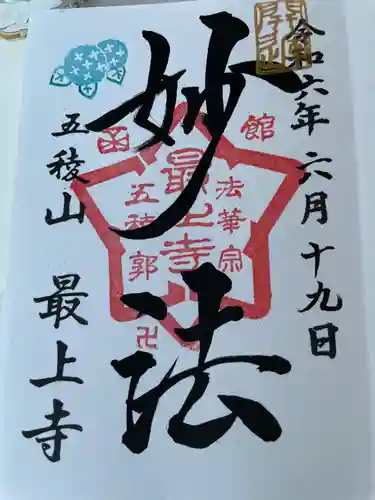 令和六年 六月十九日
妙法
五稜山 最上寺
函館
最上寺
法華宗
五稜郭
卍
開月山